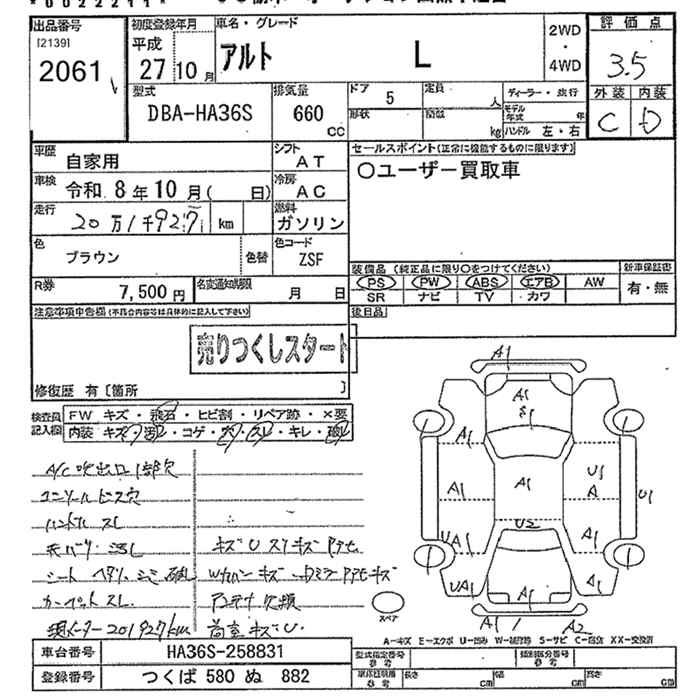 出品番号 [2139] 2061
初度登録年月 平成 27年 10月
車名・グレード アルト L
2WD・4WD
評価点 3.5
外装 C 内装 D
型式 DBA-HA36S
排気量 660 CC
ドア 5
定員 人
形状
積載 kg
ディーラー・並行
モデル年式 年
ハンドル 左・右
車歴 自家用
シフト AT
車検 令和 8年 10月( 日)
冷房 AC
走行 20万1千927 km
燃料 ガソリン
色 ブラウン 色替
色コード ZSF
R券 7,500円
名変通知期限 月 日
セールスポイント(正常に機能するものに限ります)
○ユーザー買取車
装備品 (純正品に限り○をつけてください)
PS PW ABS エアB AW
SR ナビ TV カワ
新車保証書 有・無
後日品
注意事項申告欄(不具合内容等は具体的に記入して下さい)
売りつくしスタート
修復歴 有〔箇所 〕
検査員記入欄
FW キズ・飛石・ヒビ割・リペア跡・×要
内装 キズ・汚レ・コゲ・穴・スレ・キレ・破レ
A/C吹出口1部欠
コンソールビス穴
ハンドルスレ
天バリ汚レ
シート ヘタリ シミ 破レ
カーペットスレ
現メーター201927km
アンテナ欠損
荷室キズU
A1
A1
A1
A1
A1
U1
A
U1
A1
UA1
U2
A1
UA1
A1
A1
A2
スペア
A-キズ E-エクボ U-凹み W-補修跡 S-サビ C-腐食 XX-交換済
車台番号 HA36S-258831
登録番号 つくば 580 ぬ 882
型式指定番号 参考
類別区分番号 参考
長さ cm
幅 cm
高さ cm